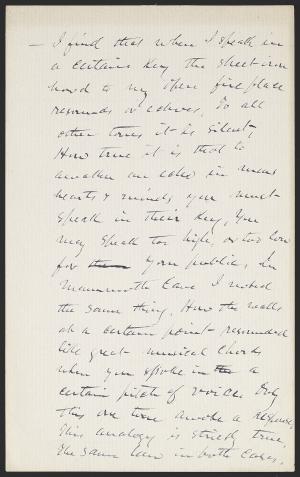 — I find that when I speak in
a certain key the sheet-iron
hood to my open fire place
resounds or echoes, To all
other tones it is silent,
How true it is that to
awaken an echo in mens
hearts & minds, you must
speak in their key, You
may speak too high, or too low
for your public, In
Mammoth Cave I noted
the same thing, How the walls
at a certain point resounded
like great musical chords
when you spoke in a
certain pitch of voice. Only
this one tone awoke a response,
This analogy is strictly true,
the same law in both cases.